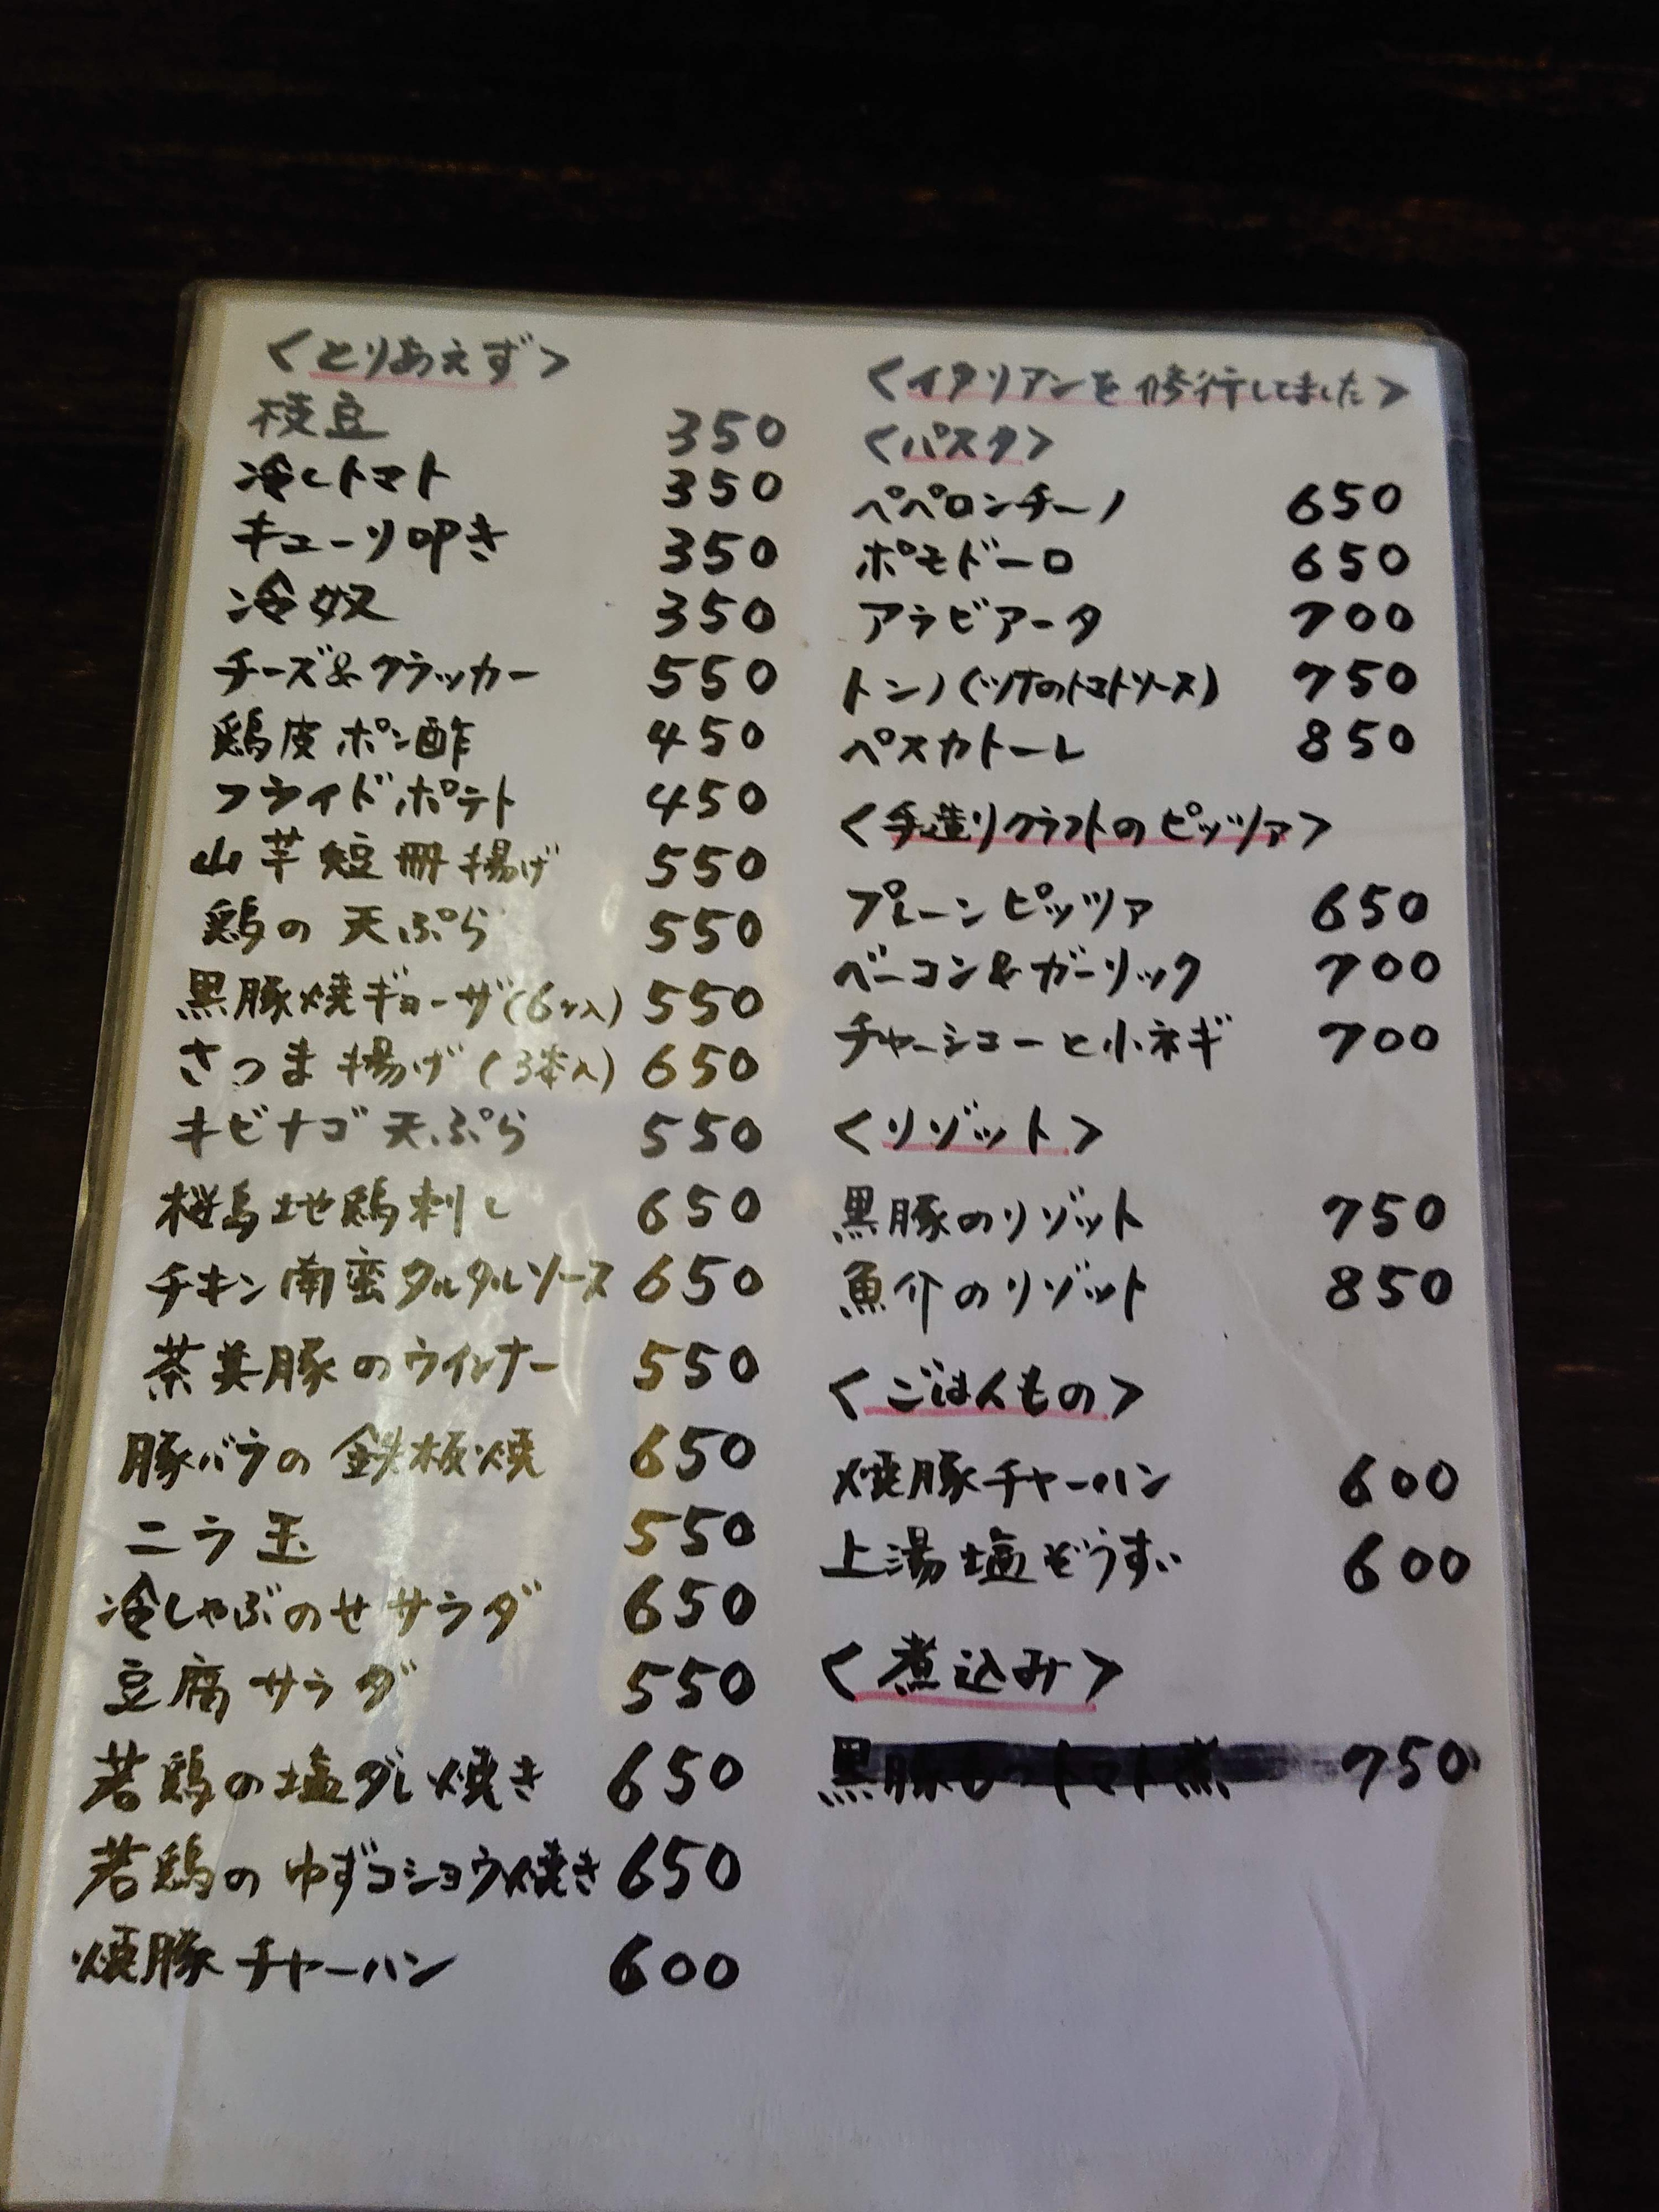 <とりあえず>
枝豆 350
冷しトマト 350
キューリ叩き 350
冷奴 350
チーズ&クラッカー 550
鶏皮ポン酢 450
フライドポテト 450
山芋短冊揚げ 550
鶏の天ぷら 550
黒豚焼ギョーザ(6ヶ入) 550
さつま揚げ(3本入) 650
キビナゴ天ぷら 550
桜島地鶏刺し 650
チキン南蛮タルタルソース 650
茶美豚のウインナー 550
豚バラの鉄板焼 650
ニラ玉 550
冷しゃぶのせサラダ 650
豆腐サラダ 550
若鶏の塩ダレ焼き 650
若鶏のゆずコショウ焼き 650
焼豚チャーハン 600
<イタリアンを修行してました>
<パスタ>
ペペロンチーノ 650
ポモドーロ 650
アラビアータ 700
トンノ(ツナのトマトソース) 750
ペスカトーレ 850
<手造りクラフトのピッツァ>
プレーンピッツァ 650
ベーコン&ガーリック 700
チャーシューと小ネギ 700
<リゾット>
黒豚のリゾット 750
魚介のリゾット 850
<ごはんもの>
焼豚チャーハン 600
上湯塩ぞうすい 600
<煮込み>
黒豚もつトマト煮 750